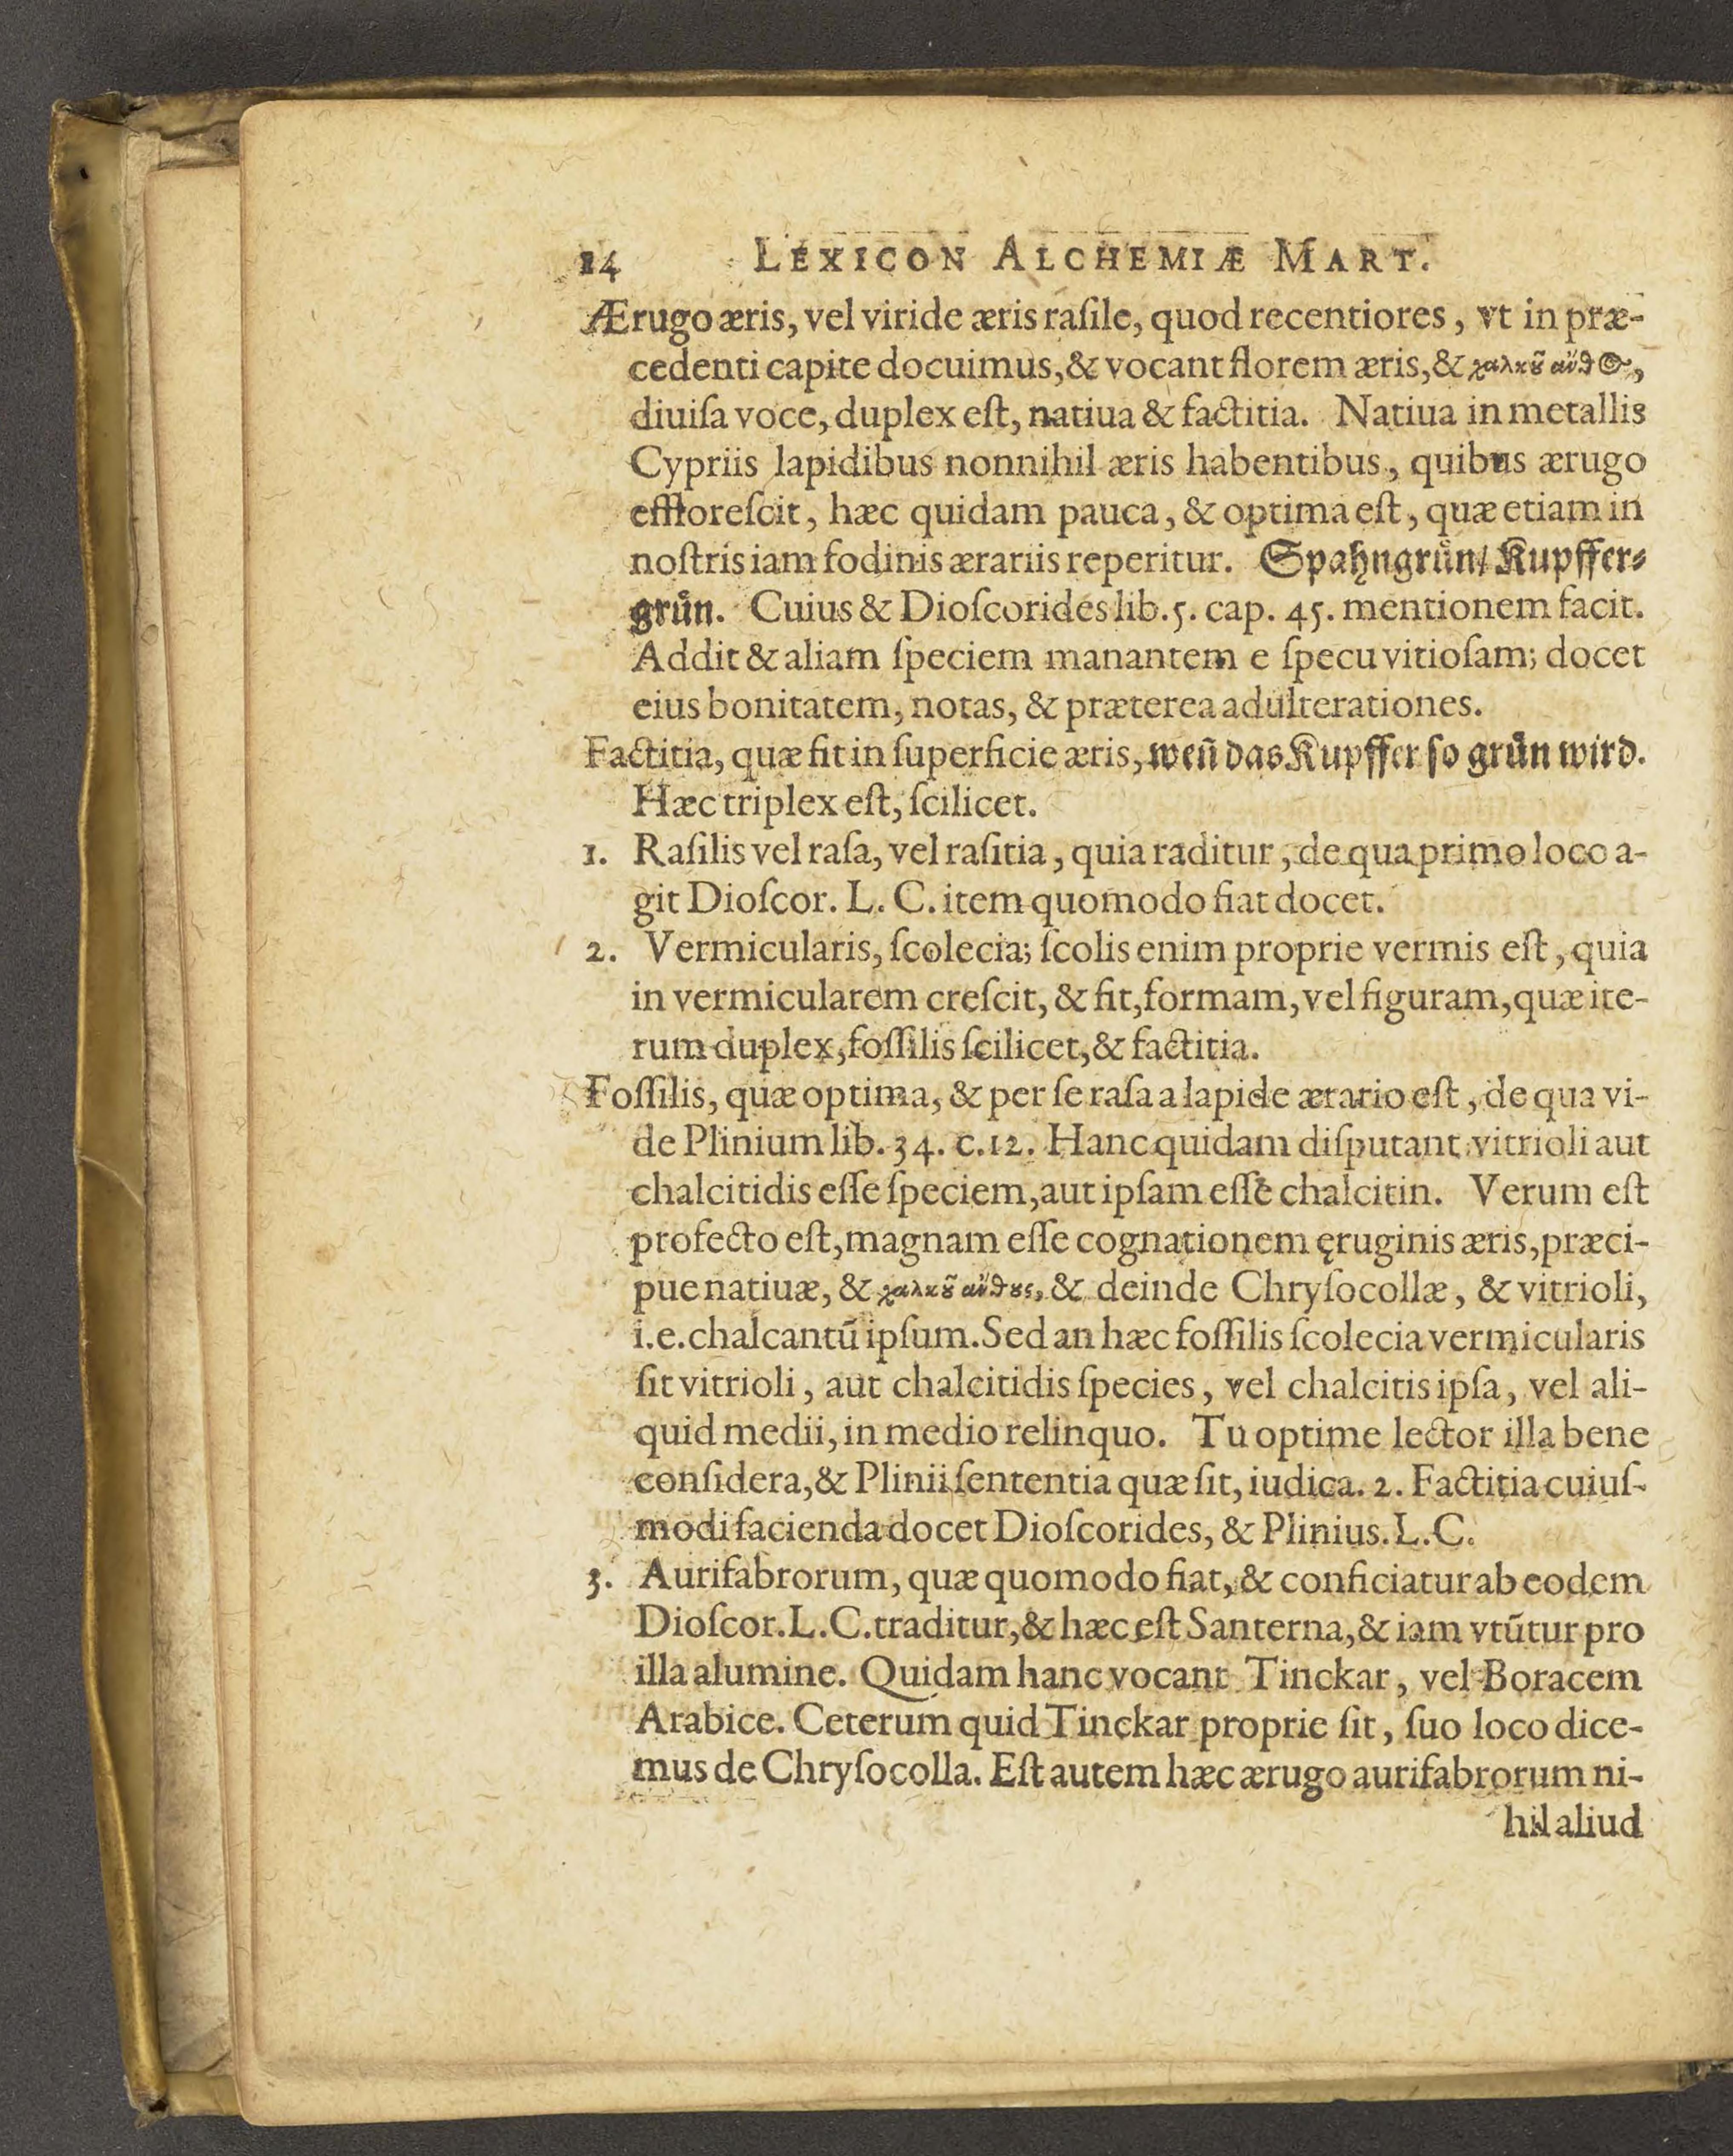 14 LEXICON ALCHEMIÆ MART.
Ærugo æris, vel viride æris raſile, quod recentiores, vt in præ-
cedenti capite docuimus,& vocant florem æris,& χαλκȣ͂ ἄνθος,
diuiſa voce, duplex eſt, natiua & factitia. Natiua in metallis
Cypriis lapidibus nonnihil æris habentibus, quibus ærugo
effloreſcit, hæc quidam pauca, & optima eſt, quæ etiam in
noſtris iam fodinis ærariis reperitur. Spahngruͤn/ Kupffer⸗
gruͤn. Cuius & Dioſcorides lib.5. cap. 45. mentionem facit.
Addit & aliam ſpeciem manantem e ſpecu vitioſam; docet
eius bonitatem, notas, & præterea adulterationes.
Factitia, quæ fit in ſuperficie æris, weñ das Kupffer ſo gruͤn wird.
Hæc triplex eſt, ſcilicet.
1. Raſilis vel raſa, vel raſitia, quia raditur, de qua primo loco a-
git Dioſcor. L. C. item quomodo fiat docet.
2. Vermicularis, ſcolecia; ſcolis enim proprie vermis eſt, quia
in vermicularem creſcit, & fit, formam, vel figuram, quæ ite-
rum duplex, foſſilis ſcilicet, & factitia.
Foſſilis, quæ optima, & per ſe raſa a lapide ærario eſt, de qua vi-
de Plinium lib. 34. c.12. Hanc quidam diſputant vitrioli aut
chalcitidis eſſe ſpeciem, aut ipſam eſſe chalcitin. Verum eſt
profecto eſt, magnam eſſe cognationem ęruginis æris, præci-
pue natiuæ, & χαλκȣ͂ ἄνθȣς, & deinde Chryſocollæ, & vitrioli,
i.e. chalcantũ ipſum. Sed an hæc foſſilis ſcolecia vermicularis
ſit vitrioli, aut chalcitidis ſpecies, vel chalcitis ipſa, vel ali-
quid medii, in medio relinquo. Tu optime lector illa bene
conſidera, & Plinii ſententia quæ ſit, iudica. 2. Factitia cuiuſ-
modi facienda docet Dioſcorides, & Plinius. L.C.
3. Aurifabrorum, quæ quomodo fiat, & conficiatur ab eodem
Dioſcor. L.C. traditur, & hæc eſt Santerna, & iam vtũtur pro
illa alumine. Quidam hanc vocant Tinckar, vel Boracem
Arabice. Ceterum quid Tinckar proprie ſit, ſuo loco dice-
mus de Chryſocolla. Eſt autem hæc ærugo aurifabrorum ni-
hil aliud